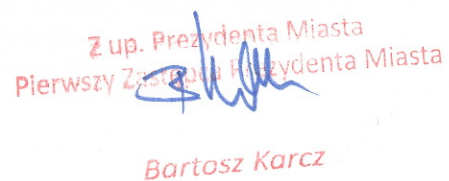 Z up. Prezydenta Miasta
Pierwszy Zastępca Prezydenta Miasta
Bartosz Karcz